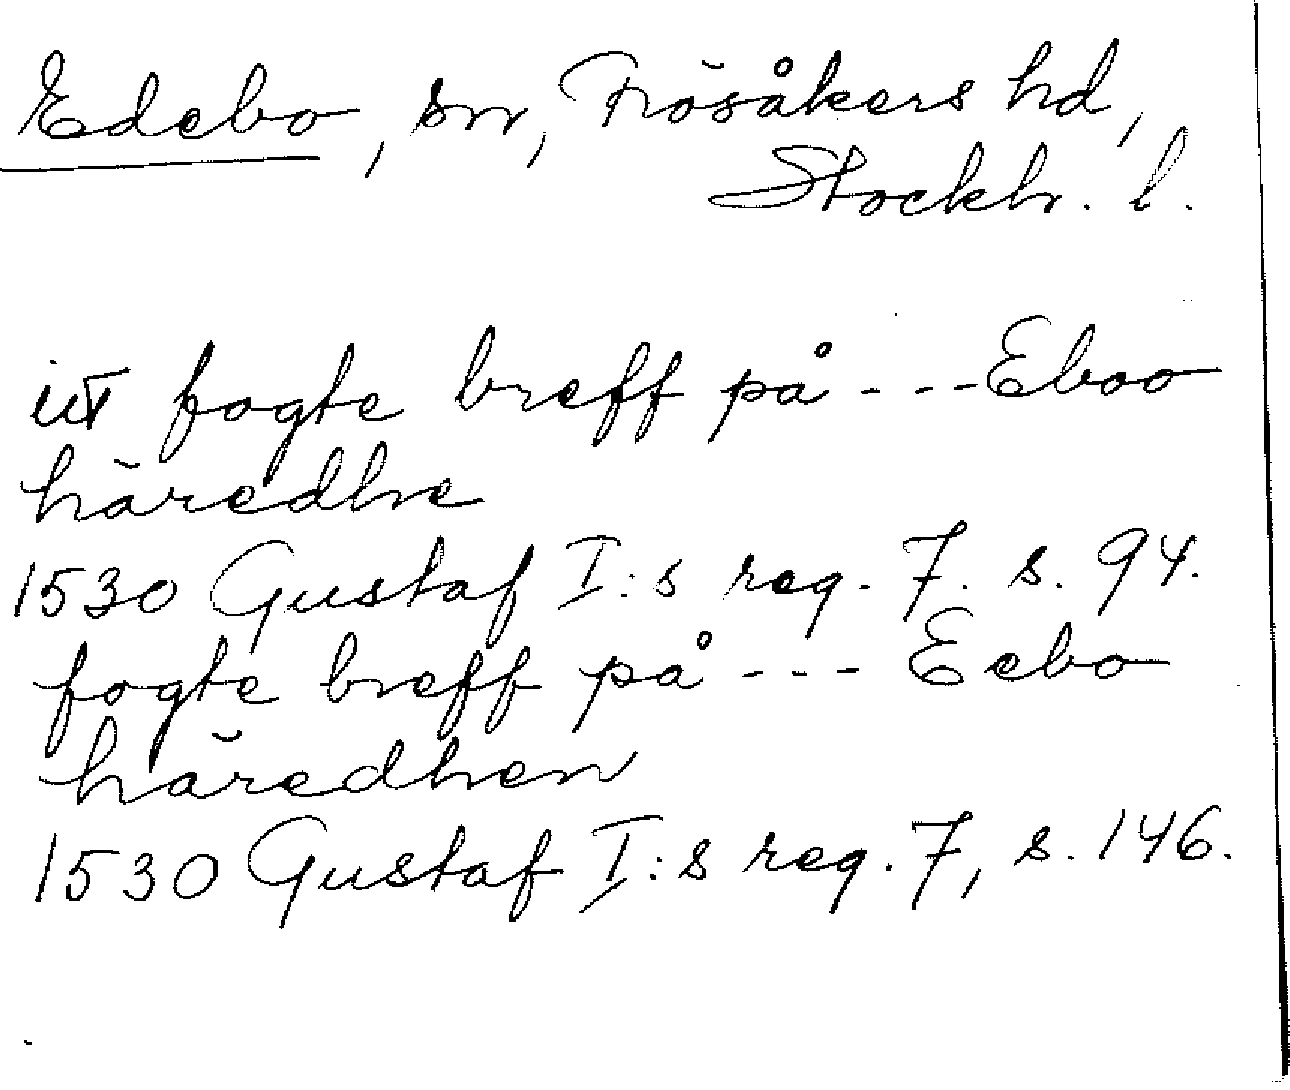 Edebo, sn, Frösåkers hd,
Stockh. l.
itt fogte breff på - - - Eboo
häredhe
1530 Gustaf I:s reg. 7. s. 94.
fogte breff på - - - Eebo
häredhen
1530 Gustaf I:s reg. 7, s. 146.